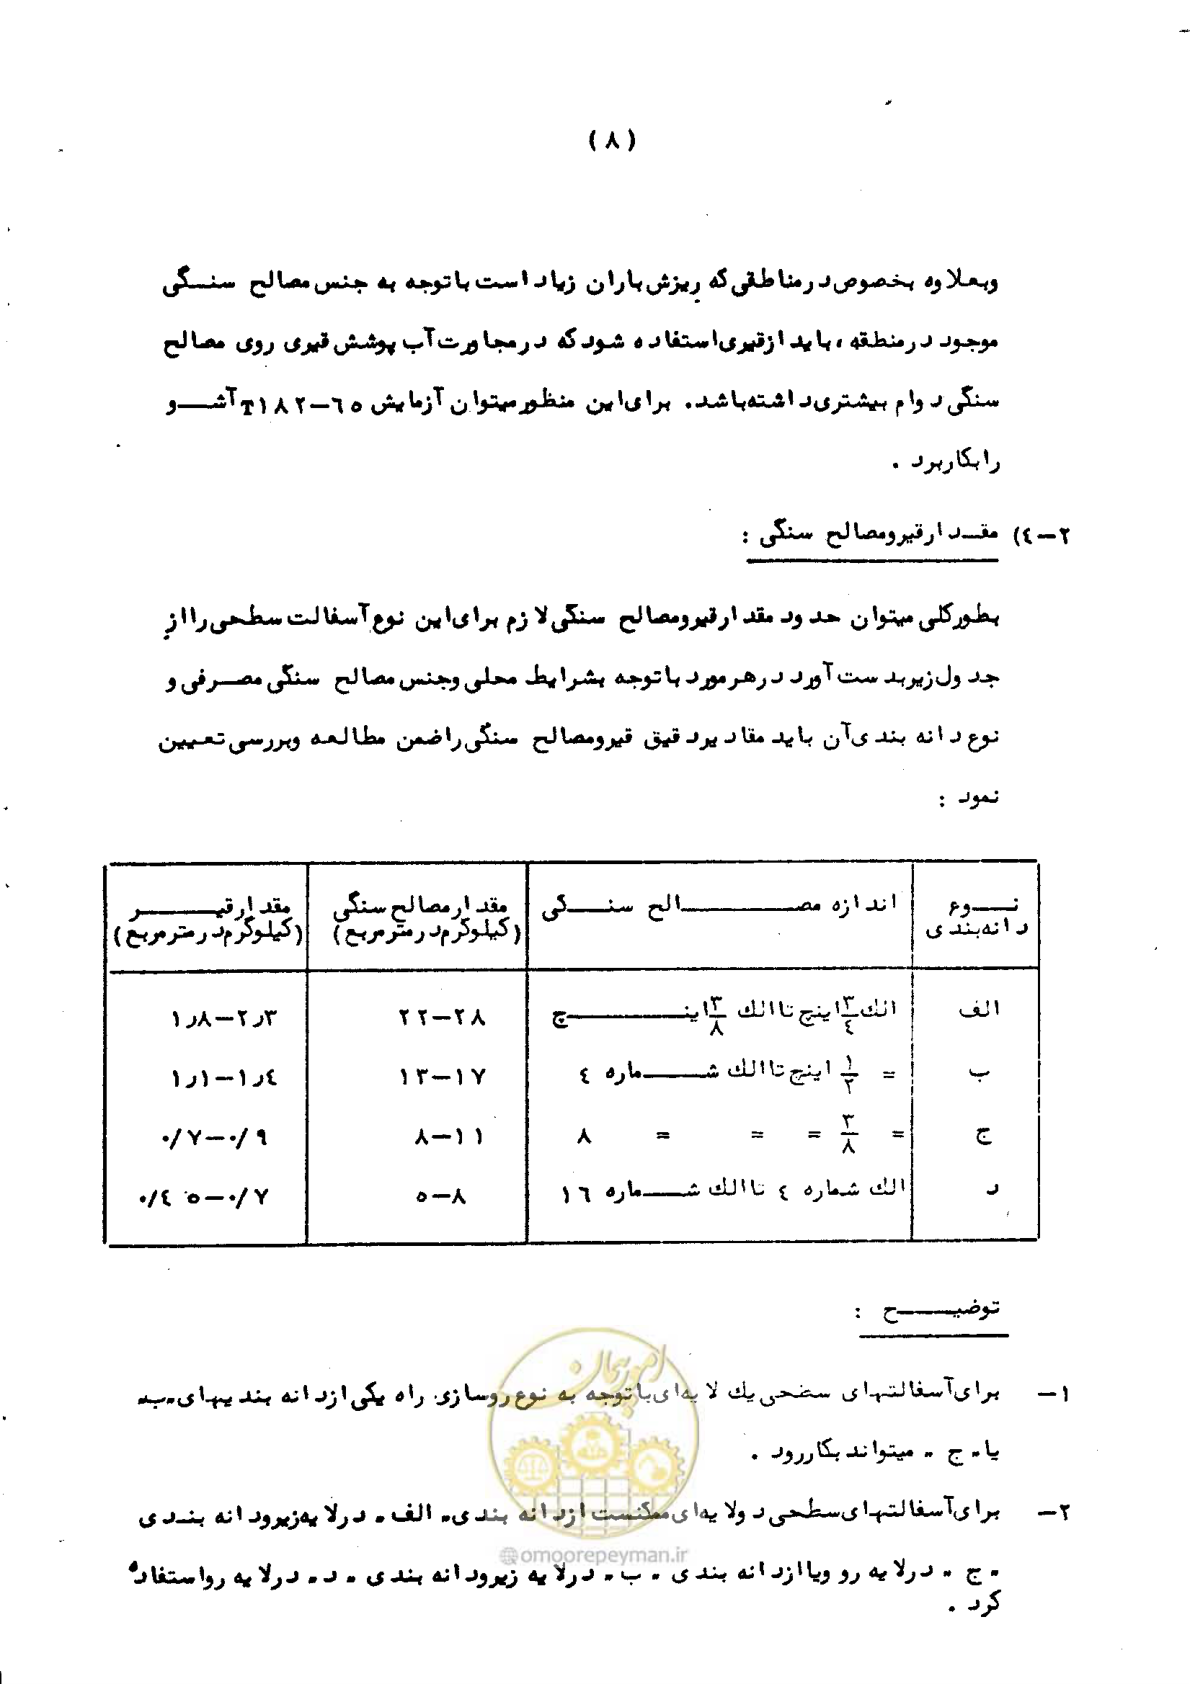 (٨)
وبعلاوه بخصوص در مناطقی که ریزش باران زیاد است با توجه به جنس مصالح سنگی
موجود در منطقه ، باید از قیری استفاده شود که در مجاورت آب پوشش قیری روی مصالح
سنگی دوام بیشتری داشته باشد . برای این منظور میتوان آزمایش T١٨٢–٦٥ آشو
را بکار برد .
٢–٤) مقدار قیر و مصالح سنگی :
بطور کلی میتوان حدود مقدار قیر و مصالح سنگی لازم برای این نوع آسفالت سطحی را از
جدول زیر بدست آورد در هر مورد با توجه بشرایط محلی و جنس مصالح سنگی مصرفی و
نوع دانه بندی آن باید مقادیر دقیق قیر و مصالح سنگی را ضمن مطالعه و بررسی تعیین
نمود :
نوع دانه‌بندی | اندازه مصالح سنگی | مقدار مصالح سنگی (کیلوگرم در متر مربع) | مقدار قیر (کیلوگرم در متر مربع)
الف | الك ٣/٤ اینچ تا الك ٣/٨ اینچ | ٢٢–٢٨ | ١٫٨–٢٫٣
ب | = ١/٢ اینچ تا الك شماره ٤ | ١٣–١٧ | ١٫١–١٫٤
ج | = ٣/٨ = = = ٨ | ٨–١١ | ٠/٧–٠/٩
د | الك شماره ٤ تا الك شماره ١٦ | ٥–٨ | ٠/٤٥–٠/٧
توضیح :
١– برای آسفالتهای سطحی یك لایه‌ای با توجه به نوع روسازی راه یکی از دانه بندیهای ـ ب ـ
یا ـ ج ـ میتواند بکار رود .
٢– برای آسفالتهای سطحی دو لایه‌ای ممکنست از دانه بندی ـ الف ـ در لایه زیر و دانه بندی
ـ ج ـ در لایه رو و یا از دانه بندی ـ ب ـ در لایه زیر و دانه بندی ـ د ـ در لایه رو استفاده
کرد .
امور پیمان
@omoorepeyman.ir